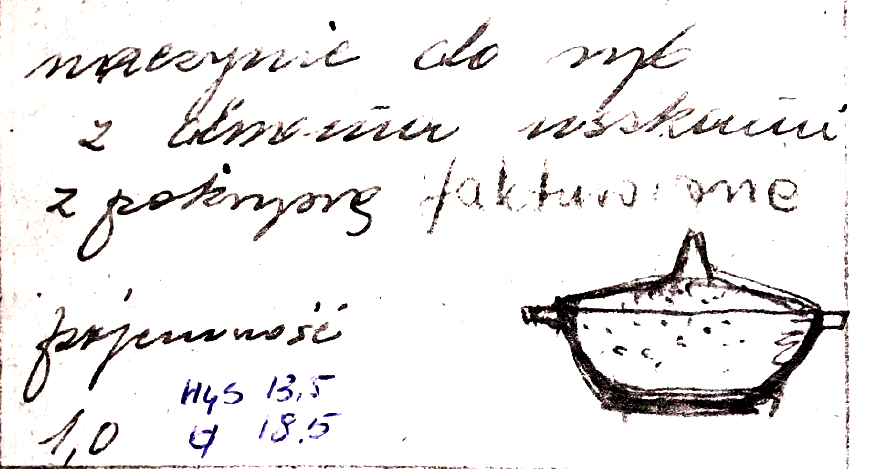 naczynie do ryb
z uszkami
z pokrywą fakturowane
pojemność
13,5
1,0 18.5